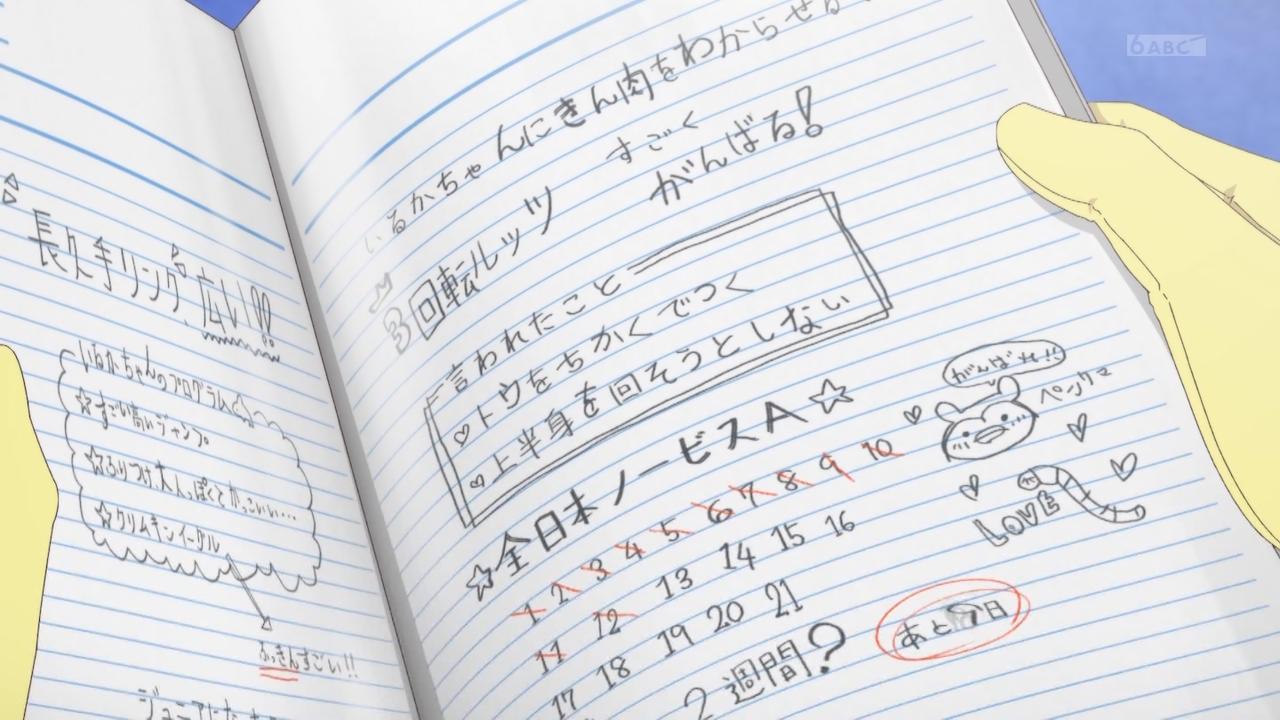 長久手リンク、広い!!
いるかちゃんのプログラム
☆すごい高いジャンプ。
☆ふりつけ、大人っぽくてかっこいい…
☆クリムキンイーグル
ふっきんすごい!!
いるかちゃんにきん肉をわからせる
3回転ルッツ
すごく
がんばる!
言われたこと
♡トウをちかくでつく
♡上半身を回そうとしない
☆全日本ノービスA☆
1 2 3 4 5 6 7 8 9 10
11 12 13 14 15 16
17 18 19 20 21
2週間?
あと 日
がんばれ!!
ペンクマ
LOVE
6ABC